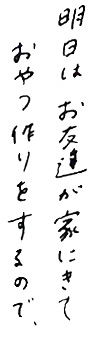 明日はお友達が家にきて
おやつ作りをするので、